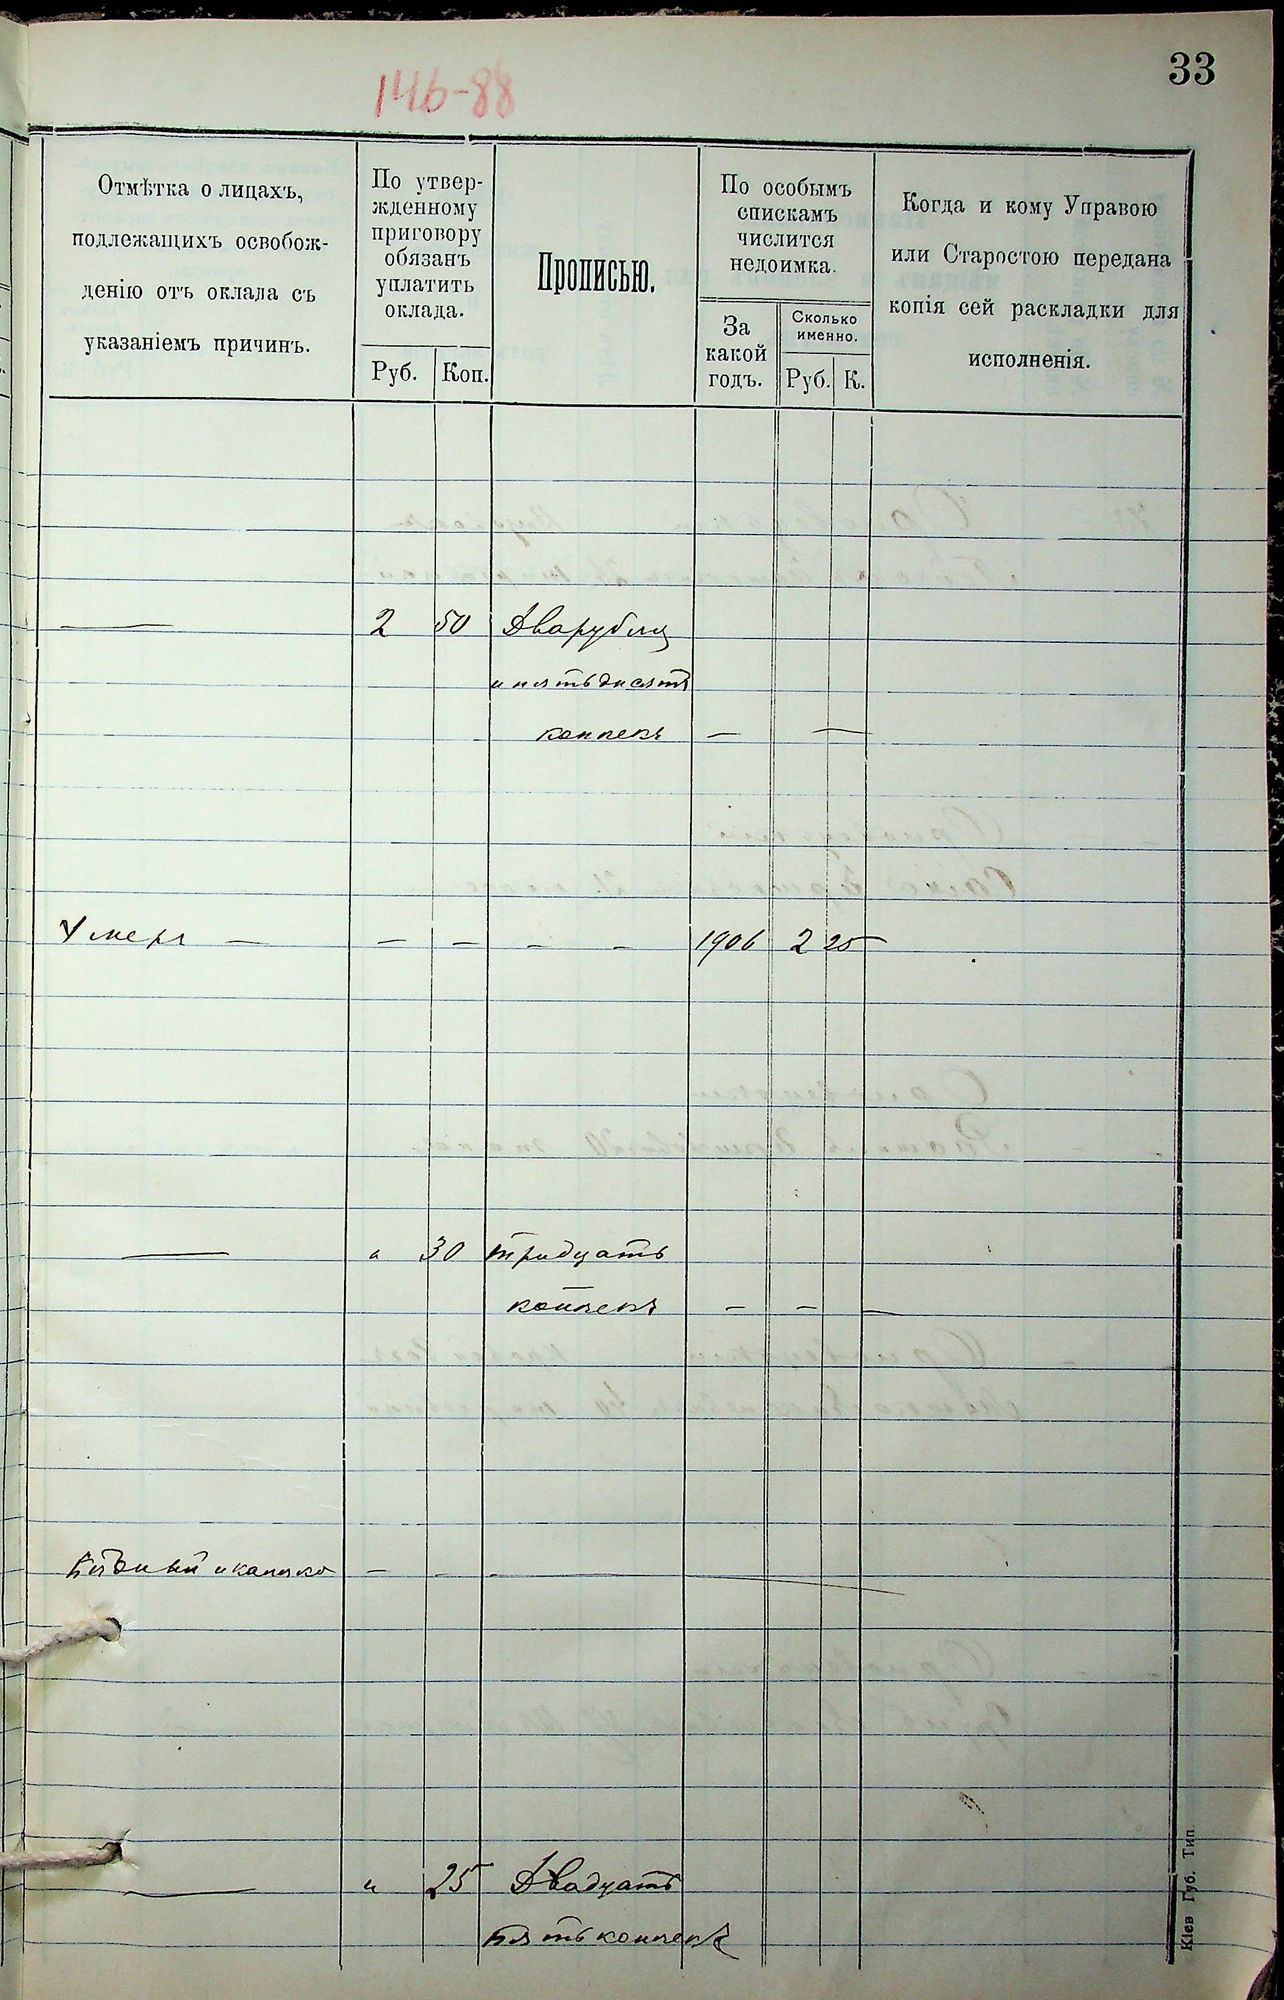 33
146-88
Отмѣтка о лицахъ,
подлежащихъ освобож-
денію отъ оклада съ
указаніемъ причинъ.
По утвер-
жденному
приговору
обязанъ
уплатить
оклада.
Руб. Коп.
Прописью.
По особымъ
спискамъ
числится
недоимка.
За
какой
годъ.
Сколько
именно.
Руб. К.
Когда и кому Управою
или Старостою передана
копія сей раскладки для
исполненія.
— 2 50 Два рубля
и пятьдесятъ
копѣекъ — —
Умеръ — — — — — 1906 2 25
— " 30 тридцать
копѣекъ — — —
Бѣдный и калѣка — — —
— " 25 Двадцать
пять копѣекъ
Кіев Губ. Тип